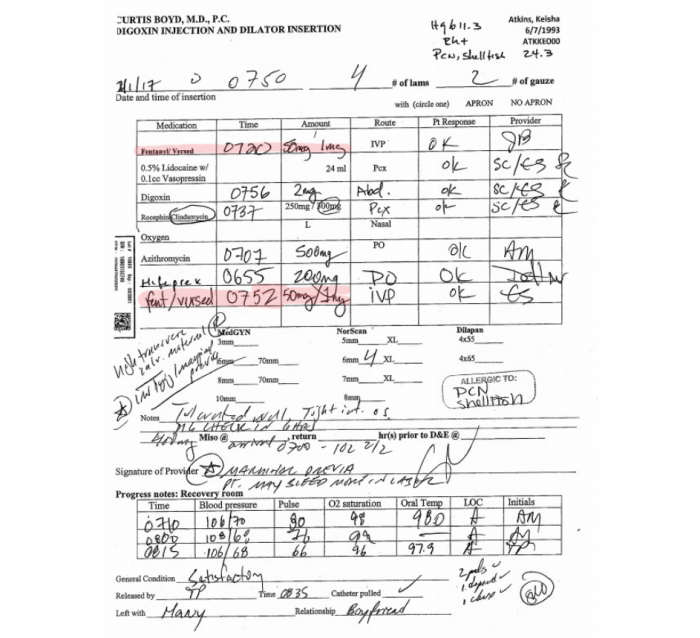 CURTIS BOYD, M.D., P.C.
DIGOXIN INJECTION AND DILATOR INSERTION
Hgb 11.3
Rh+
PCN, Shellfish
Atkins, Keisha
6/7/1993
ATKKE000
24.3
2/1/17 0750 4 # of lams 2 # of gauze
Date and time of insertion
with (circle one) APRON NO APRON
Medication Time Amount Route Pt Response Provider
Fentanyl/ Versed 0720 50mg 1mg IVP OK
0.5% Lidocaine w/ 0.1cc Vasopressin 24 ml Pcx ok SC/ES
Digoxin 0756 2mg Abd. ok SC/ES
Rocephin Clindamycin 0737 250mg / 300mg Pcx ok SC/ES
Oxygen L Nasal
Azithromycin 0707 500mg PO OK AM
Mifeprex 0655 200mg PO OK
fent/versed 0752 50mg/1mg IVP ok ES
high transverse
MedGYN NorScan Dilapan
3mm 5mm XL 4x55
6mm 70mm 6mm 4 XL 4x65
8mm 70mm 7mm XL
10mm 8mm
previa
ALLERGIC TO:
PCN
Shellfish
Notes Tolerated well, Tight int. os
CHECK IN 6 HRS
400mg Miso @ arrival, return hr(s) prior to D&E @
0700 - 102 2/2
Signature of Provider
MARGINAL PREVIA
PT. MAY BLEED MORE IN LABOR
Progress notes: Recovery room
Time Blood pressure Pulse O2 saturation Oral Temp LOC Initials
0710 106/70 90 98 98.0 A AM
0800 108/68 76 99 — A
0815 106/68 66 96 97.9 A TP
General Condition Satisfactory
Released by TP Time 0835 Catheter pulled ✓
Left with Relationship Boyfriend
2 pads ✓
1 depend ✓